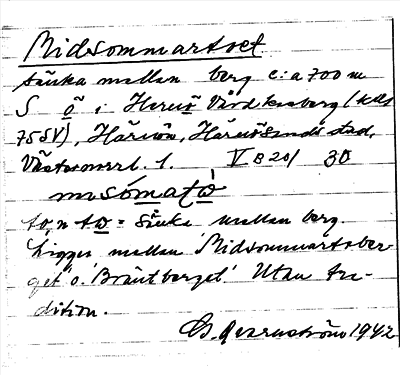 Midsommartvet
sänka mellan berg c:a 700 m
S ö i Hernö Vårdkasberg (kbl
75SV), Härnön, Härnösands stad,
Västernorrl. l. V B 20/ 30
= Sänka mellan berg.
Ligger mellan Midsommartsber-
get o. Bräntberget. Utan tra-
dition.
1942